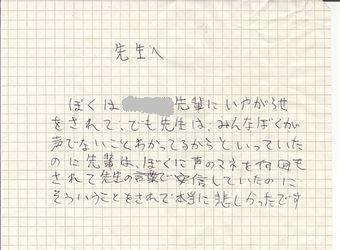 先生へ
ぼくは 先輩にいやがらせ
をされて、でも先生は、みんなぼくが
声でないことわかってるからといっていた
のに先輩は、ぼくに声のマネを何回も
されて先生の言葉で安信していたのに
そういうことをされて本当に悲しかったです